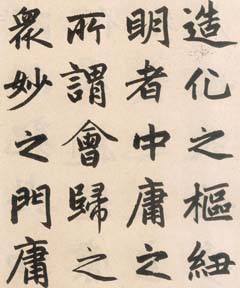 造化之樞紐
明者中庸之
所謂會歸之
眾妙之門庸